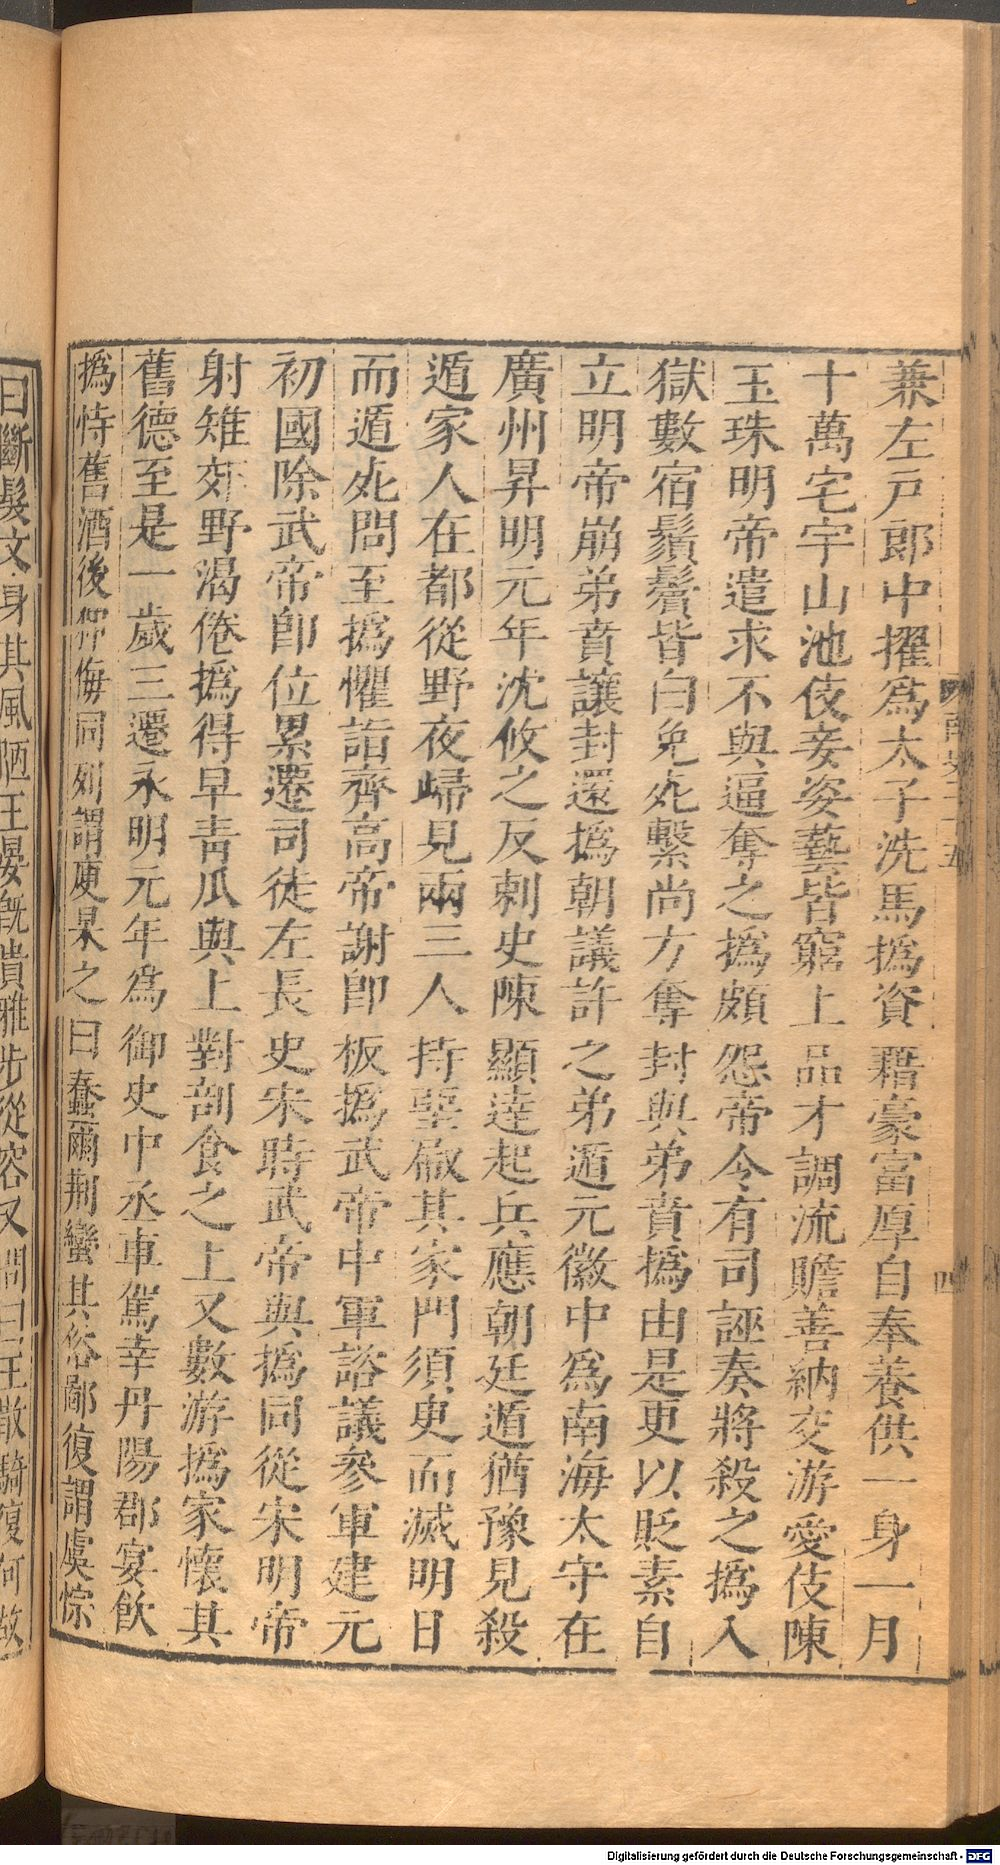 兼左戸郎中擢爲太子洗馬撝資藉豪富厚自奉養供一身一月
十萬宅宇山池伎妾姿藝皆窮上品才調流贍善納交游愛伎陳
玉珠明帝遣求不與逼奪之撝頗怨帝令有司誣奏將殺之撝入
獄數宿鬚鬢皆白免死繫尚方奪封與弟賁撝由是更以貶素自
立明帝崩弟賁讓封還撝朝議許之弟遁元徽中爲南海太守在
廣州昇明元年沈攸之反刺史陳顯達起兵應朝廷遁猶豫見殺
遁家人在都從野夜歸見兩三人持堊刷其家門須臾而滅明日
而遁死問至撝懼詣齊高帝謝即板撝武帝中軍諮議參軍建元
初國除武帝卽位累遷司徒左長史宋時武帝與撝同從宋明帝
射雉郊野渴倦撝得早靑瓜與上對剖食之上又數游撝家懷其
舊德至是一歲三遷永明元年爲御史中丞車駕幸丹陽郡宴飮
撝恃舊酒後狎侮同列謂庾杲之曰蠢爾荆蠻其俗鄙復謂虞悰
曰斷髮文身其風陋王晏旣貴雅步從容又問曰王散騎復何故
四
Digitalisierung gefördert durch die Deutsche Forschungsgemeinschaft - DFG